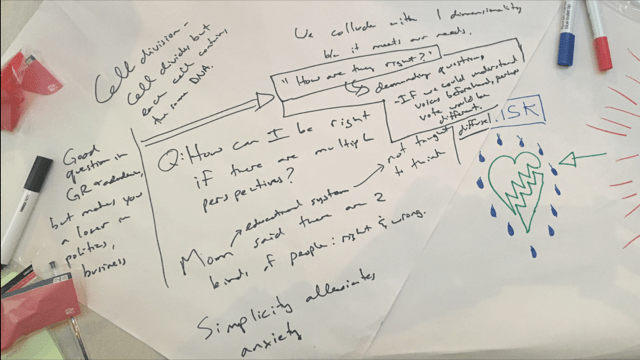 Cell division -
Cell divides but
each cell contains
the same DNA.
We collude with 1 dimensionality
b/c it meets our needs.
"How are they right?"
demanding question,
- IF we could understand
votes beforehand, perhaps
vote would be
different.
diffuse
RISK
Good
question in
GR academe,
but makes you
a loser in
politics,
business
Q: How can I be right
if there are multiple
perspectives?
educational system
not taught
to think
Mom said there are 2
kinds of people: right & wrong.
Simplicity alleviates
anxiety